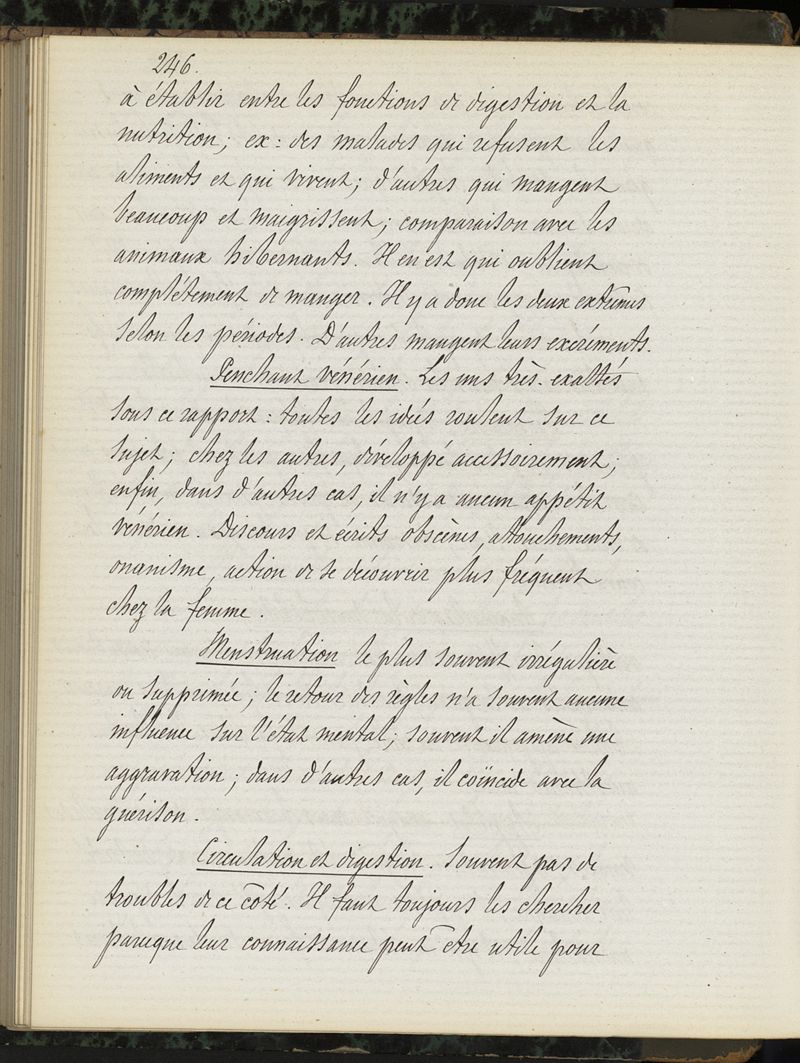 246.
à établir entre les fonctions de digestion et la
nutrition; ex: des malades qui refusent les
aliments et qui vivent; d'autres qui mangent
beaucoup et maigrissent; comparaison avec les
animaux hibernants. Il en est qui oublient
complétement de manger. Il y a donc les deux extrêmes
selon les périodes. D'autres mangent leurs excréments.
Penchant vénérien. Les uns très-exaltés
sous ce rapport: toutes les idées roulent sur ce
sujet; chez les autres, développé accessoirement;
enfin, dans d'autres cas, il n'y a aucun appétit
vénérien. Discours et écrits obscènes, attouchements,
onanisme, action de se découvrir plus fréquent
chez la femme.
Menstruation le plus souvent irrégulière
ou supprimée; le retour des règles n'a souvent aucune
influence sur l'état mental; souvent il amène une
aggravation; dans d'autres cas, il coïncide avec la
guérison.
Circulation et digestion. Souvent pas de
troubles de ce côté. Il faut toujours les chercher
parceque leur connaissance peut être utile pour